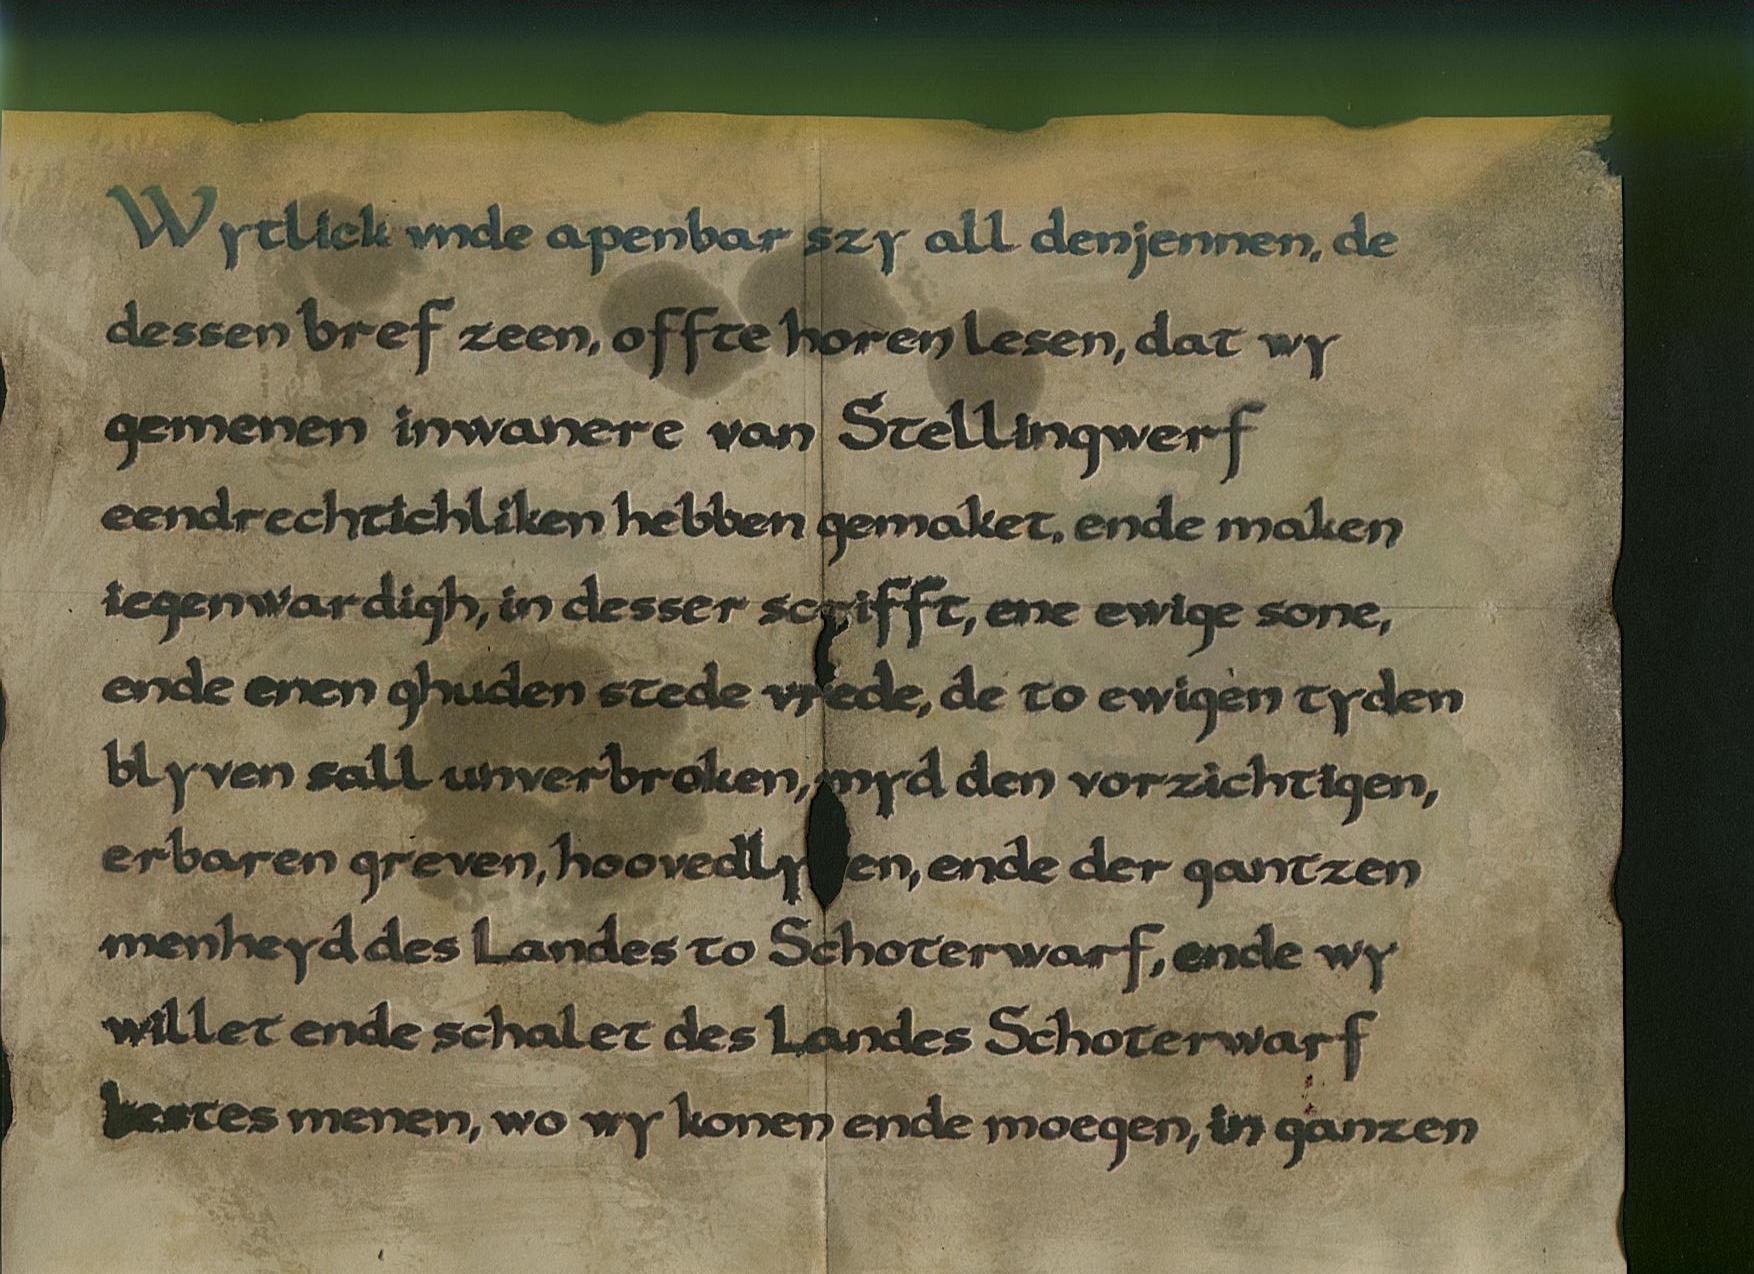 Wytlick vnde apenbar szy all denjennen, de
dessen bref zeen, offte horen lesen, dat wy
gemenen inwanere van Stellingwerf
eendrechtichliken hebben gemaket, ende maken
iegenwardigh, in desser scrifft, ene ewige sone,
ende enen ghuden stede vrede, de to ewigen tyden
blyven sall unverbroken, myd den vorzichtigen,
erbaren greven, ende der gantzen
menheyd des Landes to Schoterwarf, ende wy
willet ende schalet des Landes Schoterwarf
bestes menen, wo wy konen ende moegen, in ganzen